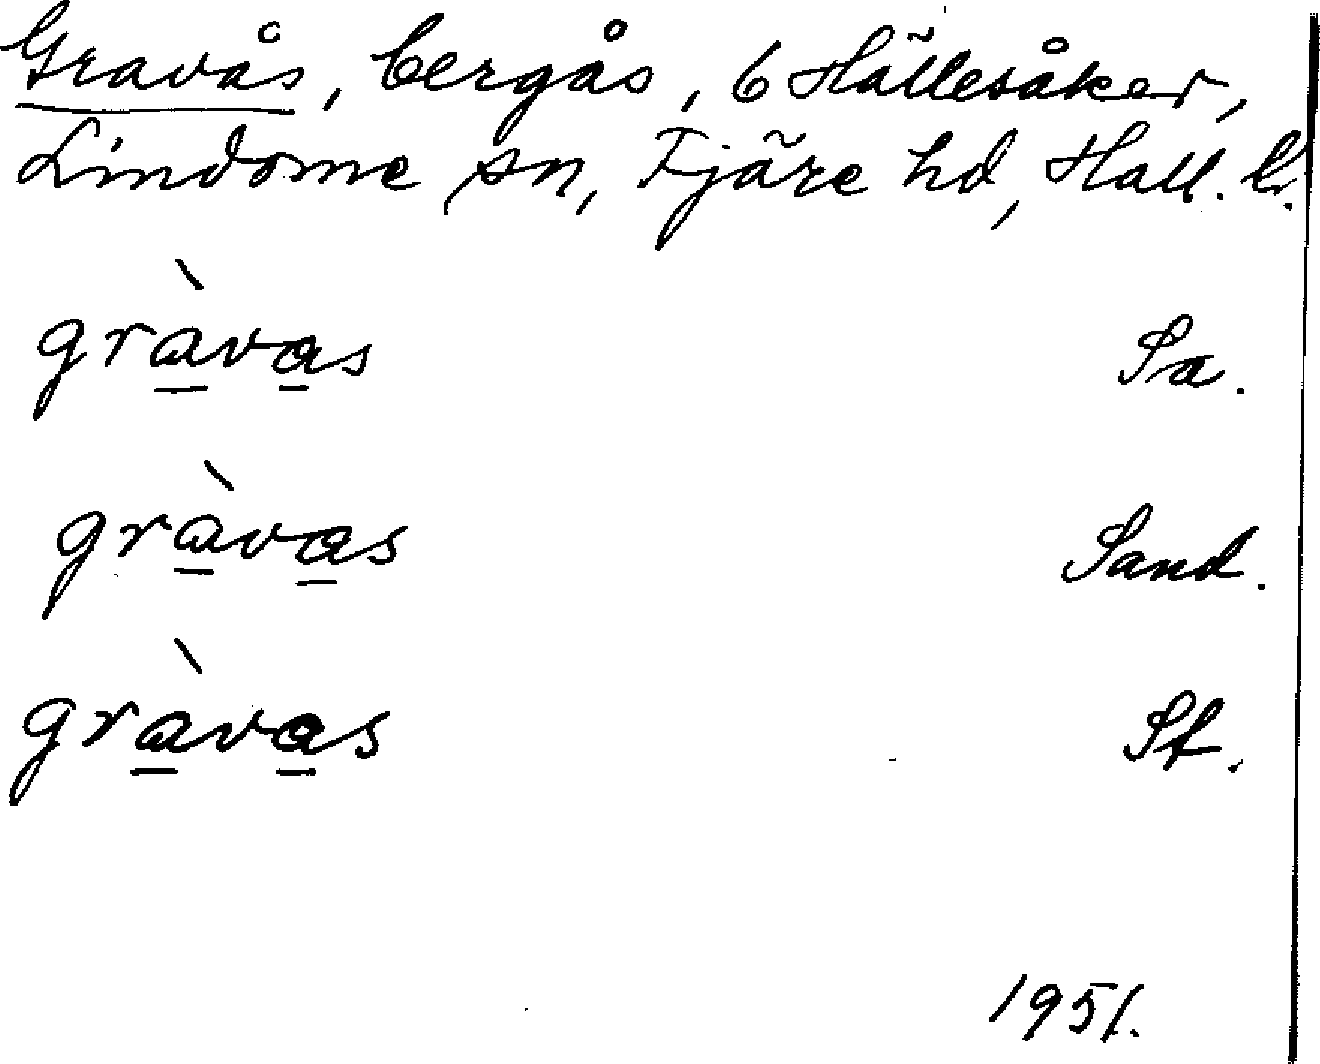 Gravås, bergås, 6 Hällesåker,
Lindome sn, Fjäre hd, Hall. l.
gràvas Sa.
gràvas Sand.
gràvas St.
1951.